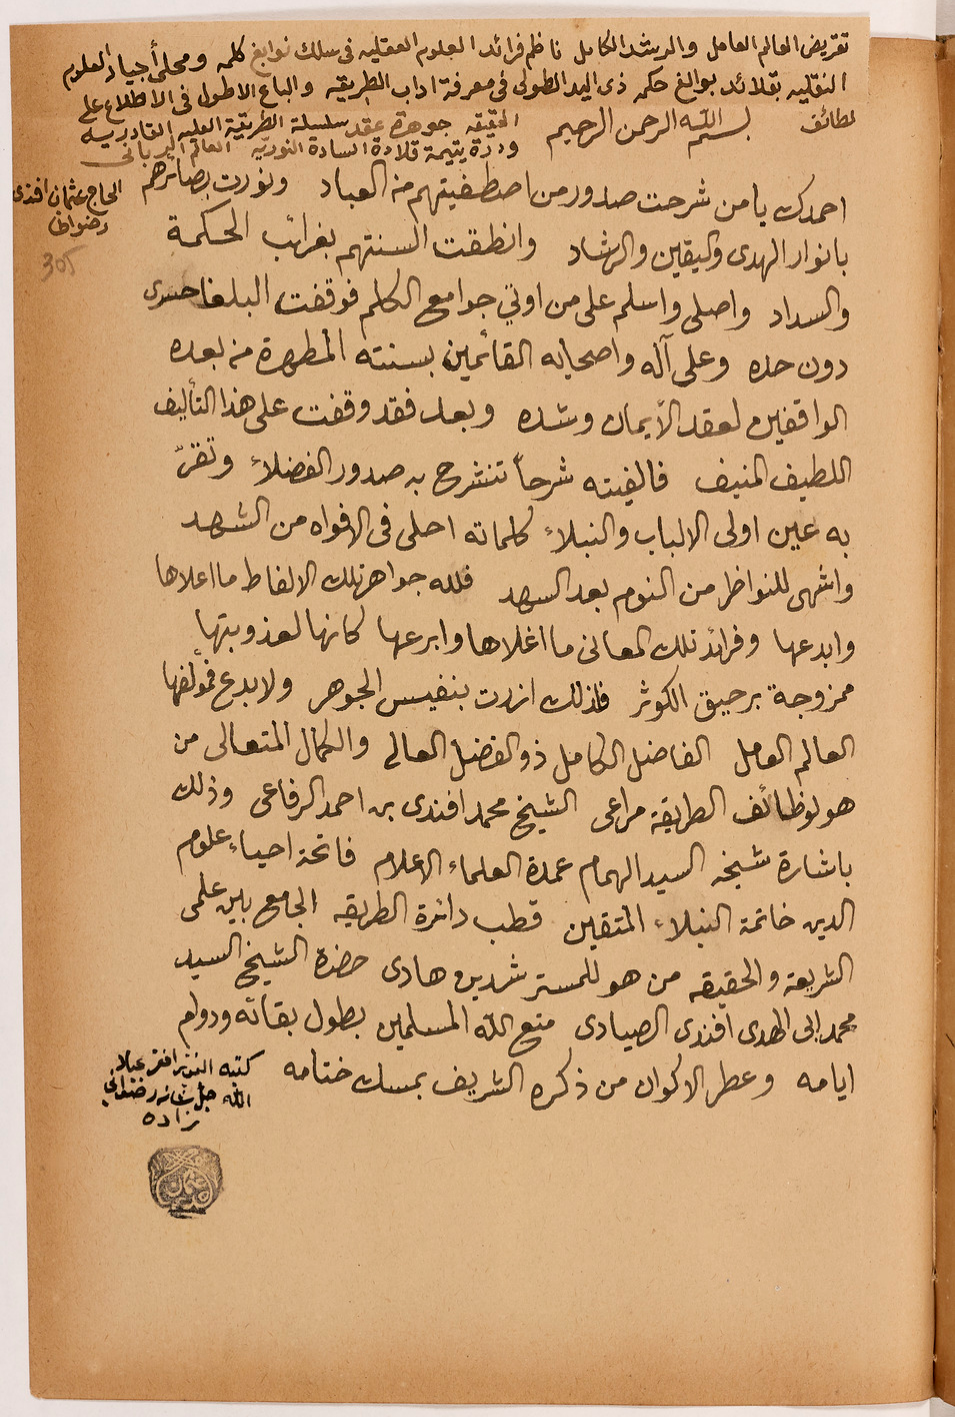 تقريض العالم العامل والمرشد الكامل ناظم فرائد العلوم العقليه فى سلك نوابغ كلمه ومحلى أجياد العلوم
النقليه بقلائد بوالغ حكمه ذى اليد الطولى فى معرفة اداب الطريقه والباع الاطول فى الاطلاع على
لطائف
الحقيقه جوهرة عقد سلسلة الطريقة العليه القادريه
ودرة يتيمة قلادة السادة النوريه العالم الربانى
الحاج عثمان افندى
رضوانى
305
بسم الله الرحمن الرحيم
احمدك يا من شرحت صدور من اصطفيتهم من العباد ونورت بصائرهم
بانوار الهدى واليقين والرشاد وانطقت السنتهم بغرائب الحكمة
والسداد واصلى واسلم على من اوتي جوامع الكلم فوقفت البلغا حسرى
دون حده وعلى آله واصحابه القائمين بسنته المطهرة من بعده
الواقفين لعقد الأيمان وشده وبعد فقد وقفت على هذا التأليف
اللطيف المنيف فالفيته شرحاً تنشرح به صدور الفضلاء وتقرّ
به عين اولى الالباب والنبلاء كلماته احلى فى الافواه من الشهد
واشهى للنواظر من النوم بعد السهد فلله جواهر تلك الالفاظ ما اعلاها
وابدعها وفرائد تلك المعانى ما اغلاها وابرعها كانها لعذوبتها
ممزوجة برحيق الكوثر فلذلك ازرت بنفيس الجوهر ولا بدع فمؤلفها
العالم العامل الفاضل الكامل ذو الفضل العالى والكمال المتعالى من
هو لوظائف الطريقة مراعى الشيخ محمد افندى بن احمد الرفاعى وذلك
باشارة شيخه السيد الهمام عمدة العلماء الاعلام فاتحة احياء علوم
الدين خاتمة النبلاء المتقين قطب دائرة الطريقه الجامع بين علمى
الشريعة والحقيقه من هو للمسترشدين هادى حضرة الشيخ السيد
محمد ابى الهدى افندى الصيادى متع الله المسلمين بطول بقائه ودوام
ايامه وعطر الاكوان من ذكره الشريف بمسك ختامه
كتبه افقر عباد
الله جل شانه رضوانى
زاده
عثمان